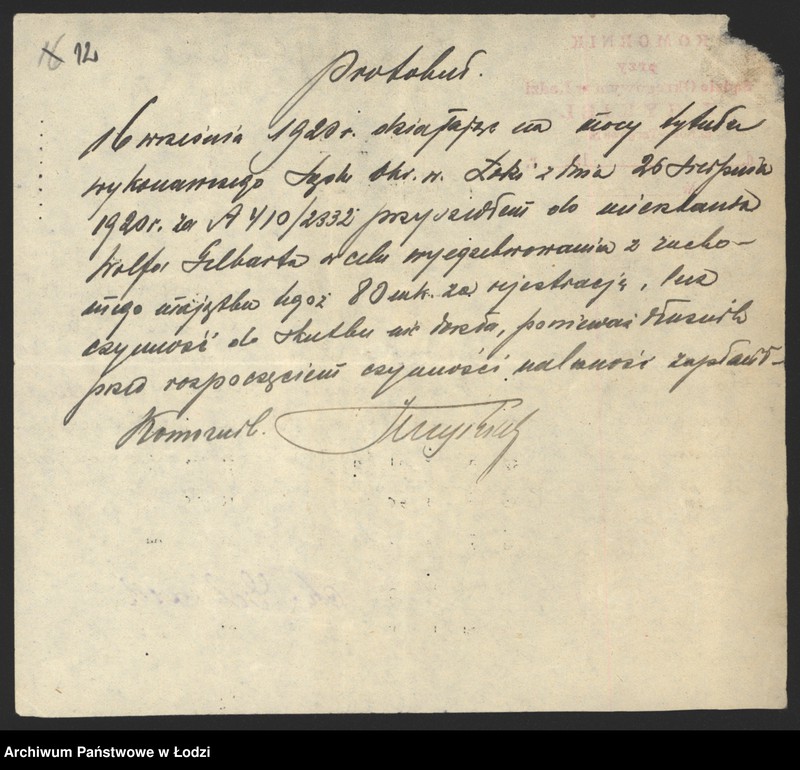 16 12
Protokuł.
16 września 1920 r. działając na mocy tytułu
wykonawczego Sądu Okr. w. Łodzi z dnia 26 sierpnia
1920 r. za A 410/2332 przyszedłem do mieszkania
Wolfa Gelbarta w celu wyegzekwowania z rucho-
mego majątku tegoż 80 mk. za rejestrację, lecz
czynność do skutku nie doszła, ponieważ dłużnik
przed rozpoczęciem czynności należność zapłacił.
Komornik.
KOMORNIK
przy
Sądzie Okręgowym w Łodzi
Archiwum Państwowe w Łodzi